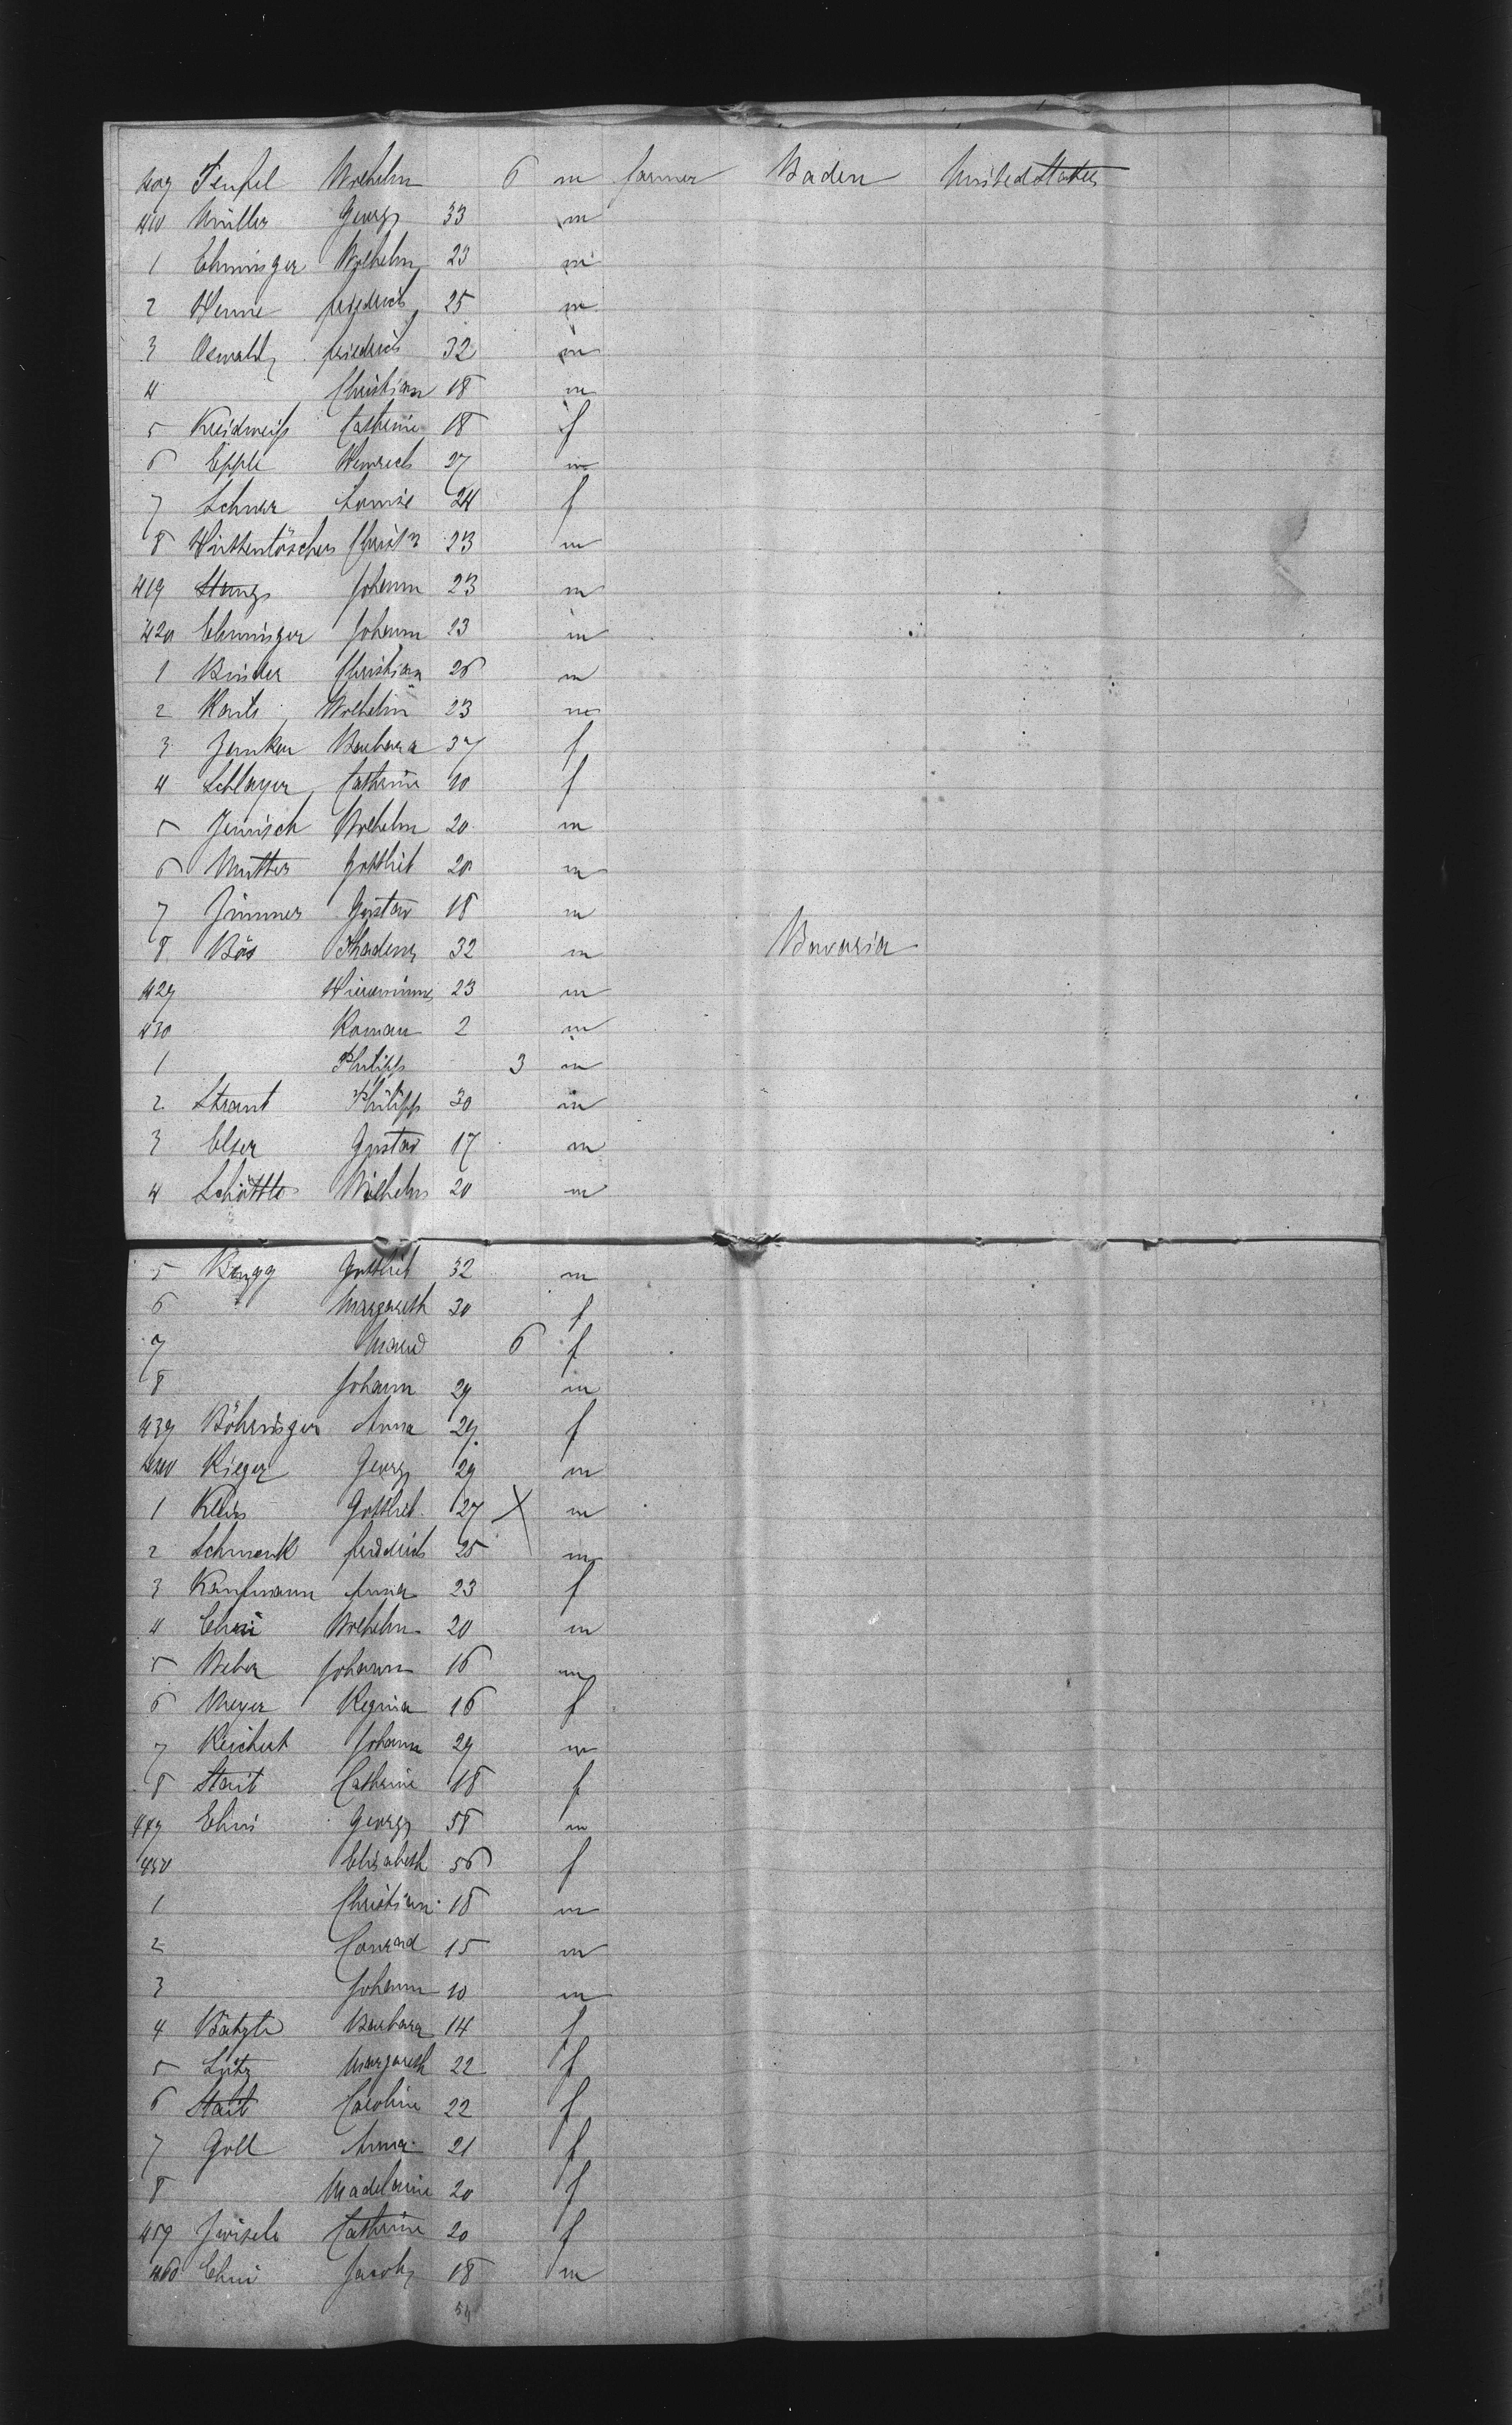 409 Teufel Wilhelm 6 m farmer Baden United States
410 Müller Georg 33 m
1 Ehninger Wilhelm 23 m
2 Henne friedrich 25 m
3 Oswald friedrich 32 m
4 Christian 18 m
5 Kreidweiss Catherine 18 f
6 Epple Heinrich 27 m
7 Louise 24 f
8 Christn 23 m
419 Stang Johann 23 m
420 Ehninger Johann 23 m
1 Binder Christian 26 m
2 Wilhelm 23 m
3 Junker Barbara 37 f
4 Schlayer Catherine 10 f
5 Jenisch Wilhelm 20 m
6 Mutter Gottlieb 20 m
7 Zimmer Gustav 18 m
8 Bös Thadeus 32 m Bavaria
429 23 m
430 Roman 2 m
1 Philipp 3 m
2 Straut Philipp 30 m
3 Elser Gustav 17 m
4 Schöttle Wilhelm 20 m
5 Gottlieb 32 m
6 Margareth 30 f
7 6 f
8 Johann 29 m
439 Böhringer Anna 29 f
440 Rieger Georg 29 m
1 Klein Gottlieb 27 X m
2 Schwenk friedrich 25 m
3 Kaufmann Anna 23 f
4 Wilhelm 20 m
5 Weber Johann 16 m
6 Meyer Regina 16 f
7 Reichert Johann 29 m
8 Stait Cathrine 18 f
449 Georg 58 m
450 Elisabeth 56 f
1 Christian 18 m
2 Conrad 15 m
3 Johann 10 m
4 Bätzle Barbara 14 f
5 Lutz Margareth 22 f
6 Stait Caroline 22 f
7 Goll Anna 21 f
8 Madelaine 20 f
459 Catherine 20 f
460 Jacob 18 m